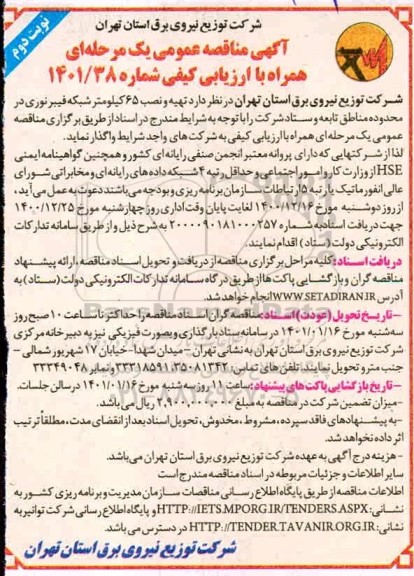 نوبت دوم
شرکت توزیع نیروی برق استان تهران
آگهی مناقصه عمومی یک مرحله‌ای
همراه با ارزیابی کیفی شماره ۱۴۰۱/۳۸
شرکت توزیع نیروی برق استان تهران در نظر دارد تهیه و نصب ۶۵ کیلومتر شبکه فیبر نوری در
محدوده مناطق تابعه و ستاد شرکت را با توجه به شرایط مندرج در اسناد از طریق برگزاری مناقصه
عمومی یک مرحله‌ای همراه با ارزیابی کیفی به شرکت های واجد شرایط واگذار نماید.
لذا از شرکتهایی که دارای پروانه معتبر انجمن صنفی رایانه‌ای کشور و همچنین گواهینامه ایمنی
HSE از وزارت کار و امور اجتماعی و حداقل رتبه ۴ شبکه داده های رایانه ای و مخابراتی شورای
عالی انفورماتیک یا رتبه ۵ ارتباطات سازمان برنامه ریزی و بودجه می باشند دعوت به عمل می آید،
از روز دوشنبه مورخ ۱۴۰۰/۱۲/۱۶ لغایت پایان وقت اداری روز چهارشنبه مورخ ۱۴۰۰/۱۲/۲۵
جهت دریافت اسناد به شماره ۲۰۰۰۰۹۰۱۸۱۰۰۰۲۵۷ به شرح ذیل و از طریق سامانه تدارکات
الکترونیکی دولت (ستاد) اقدام نمایند.
دریافت اسناد: کلیه مراحل برگزاری مناقصه از دریافت و تحویل اسناد مناقصه، ارائه پیشنهاد
مناقصه گران و بازگشایی پاکت ها از طریق درگاه سامانه تدارکات الکترونیکی دولت (ستاد) به
آدرس WWW.SETADIRAN.IR انجام خواهد شد.
-تاریخ تحویل (عودت) اسناد: مناقصه گران اسناد مناقصه را حداکثر تا ساعت ۱۰ صبح روز
سه شنبه مورخ ۱۴۰۱/۰۱/۱۶ در سامانه ستاد بارگذاری و بصورت فیزیکی نیز به دبیرخانه مرکزی
شرکت توزیع نیروی برق استان تهران به نشانی تهران - میدان شهدا - خیابان ۱۷ شهریور شمالی -
جنب مترو تحویل نمایند. تلفن های تماس: ۳۵۰۸۱۳۴۲، ۳۳۳۱۸۵۹۱ و نمابر ۳۳۳۴۹۰۴۸
-تاریخ بازگشایی پاکت های پیشنهاد: ساعت ۱۱ روز سه شنبه مورخ ۱۴۰۱/۰۱/۱۶ در سالن جلسات.
-میزان تضمین شرکت در مناقصه به مبلغ ۲,۹۰۰,۰۰۰,۰۰۰ ریال می باشد.
-به پیشنهادهای فاقد سپرده، مشروط، مخدوش، تحویل اسناد بعد از انقضای مدت، مطلقا ترتیب
اثر داده نخواهد شد.
-هزینه درج آگهی به عهده شرکت توزیع نیروی برق استان تهران می باشد.
سایر اطلاعات و جزئیات مربوطه در اسناد مناقصه مندرج است
اطلاعات مناقصه از طریق پایگاه اطلاع رسانی مناقصات سازمان مدیریت و برنامه ریزی کشور به
نشانی: HTTP://IETS.MPORG.IR/TENDERS.ASPX و پایگاه اطلاع رسانی شرکت توانیر به
نشانی: HTTP://TENDER.TAVANIR.ORG.IR در دسترس می باشد.
شرکت توزیع نیروی برق استان تهران